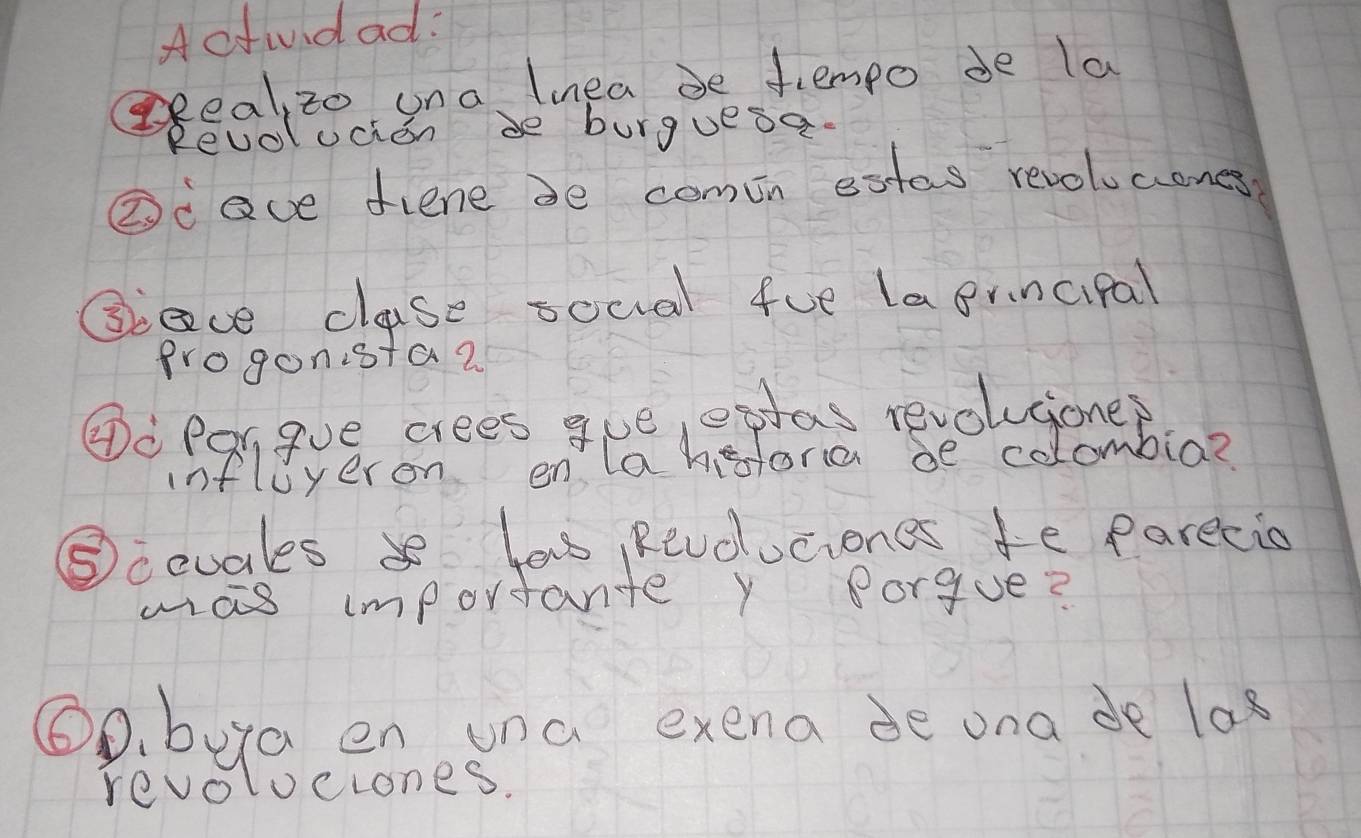 Actividad:
1. Realizo una linea de tiempo de la
Revolución de burguesa.
2. ¿Que tiene de común estas revoluciones?
3. ¿Que clase social fue la principal
progonista?
4. ¿Por que crees que estas revoluciones
influyeron en la historia de colombia?
5. ¿cuales de las Revoluciones te Parecio
más importante y Porque?
6. Dibuja en una exena de una de las
revoluciones.